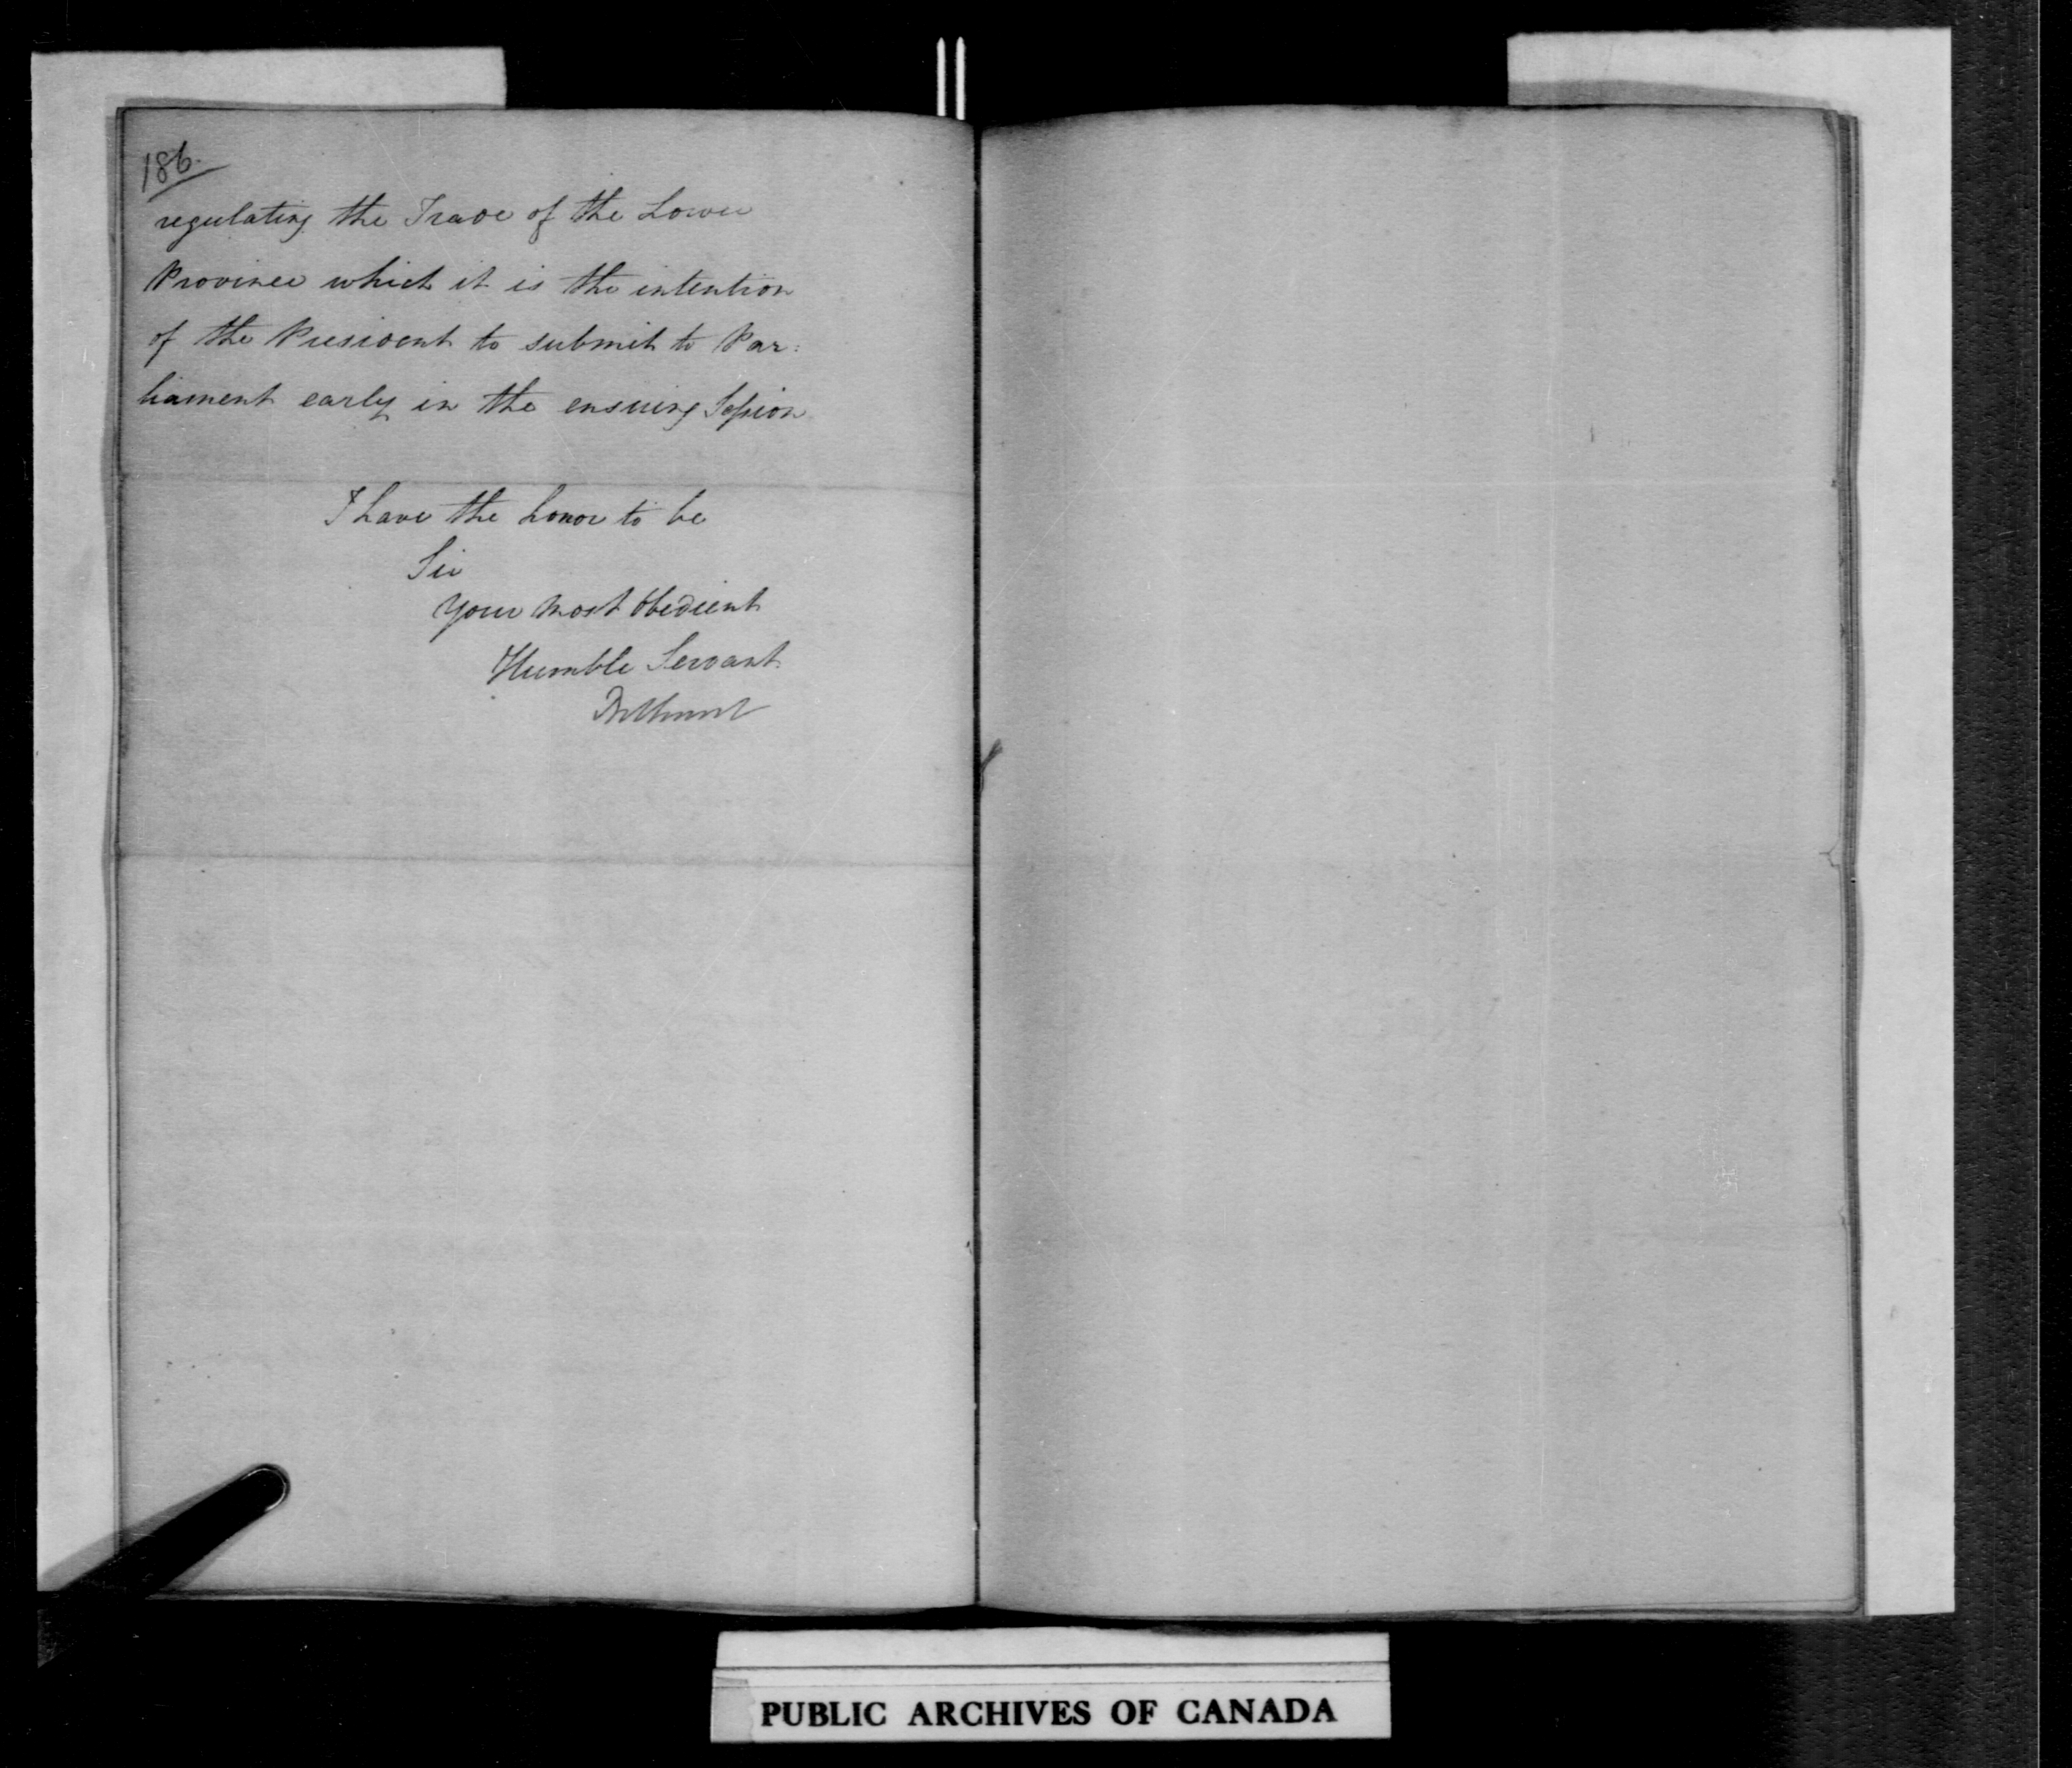 186.
regulating the Trade of the Lower
Province which it is the intention
of the President to submit to Par:
liament early in the ensuing Session
I have the honor to be
Sir
Your Most Obedient
Humble Servant
Bathurst
PUBLIC ARCHIVES OF CANADA